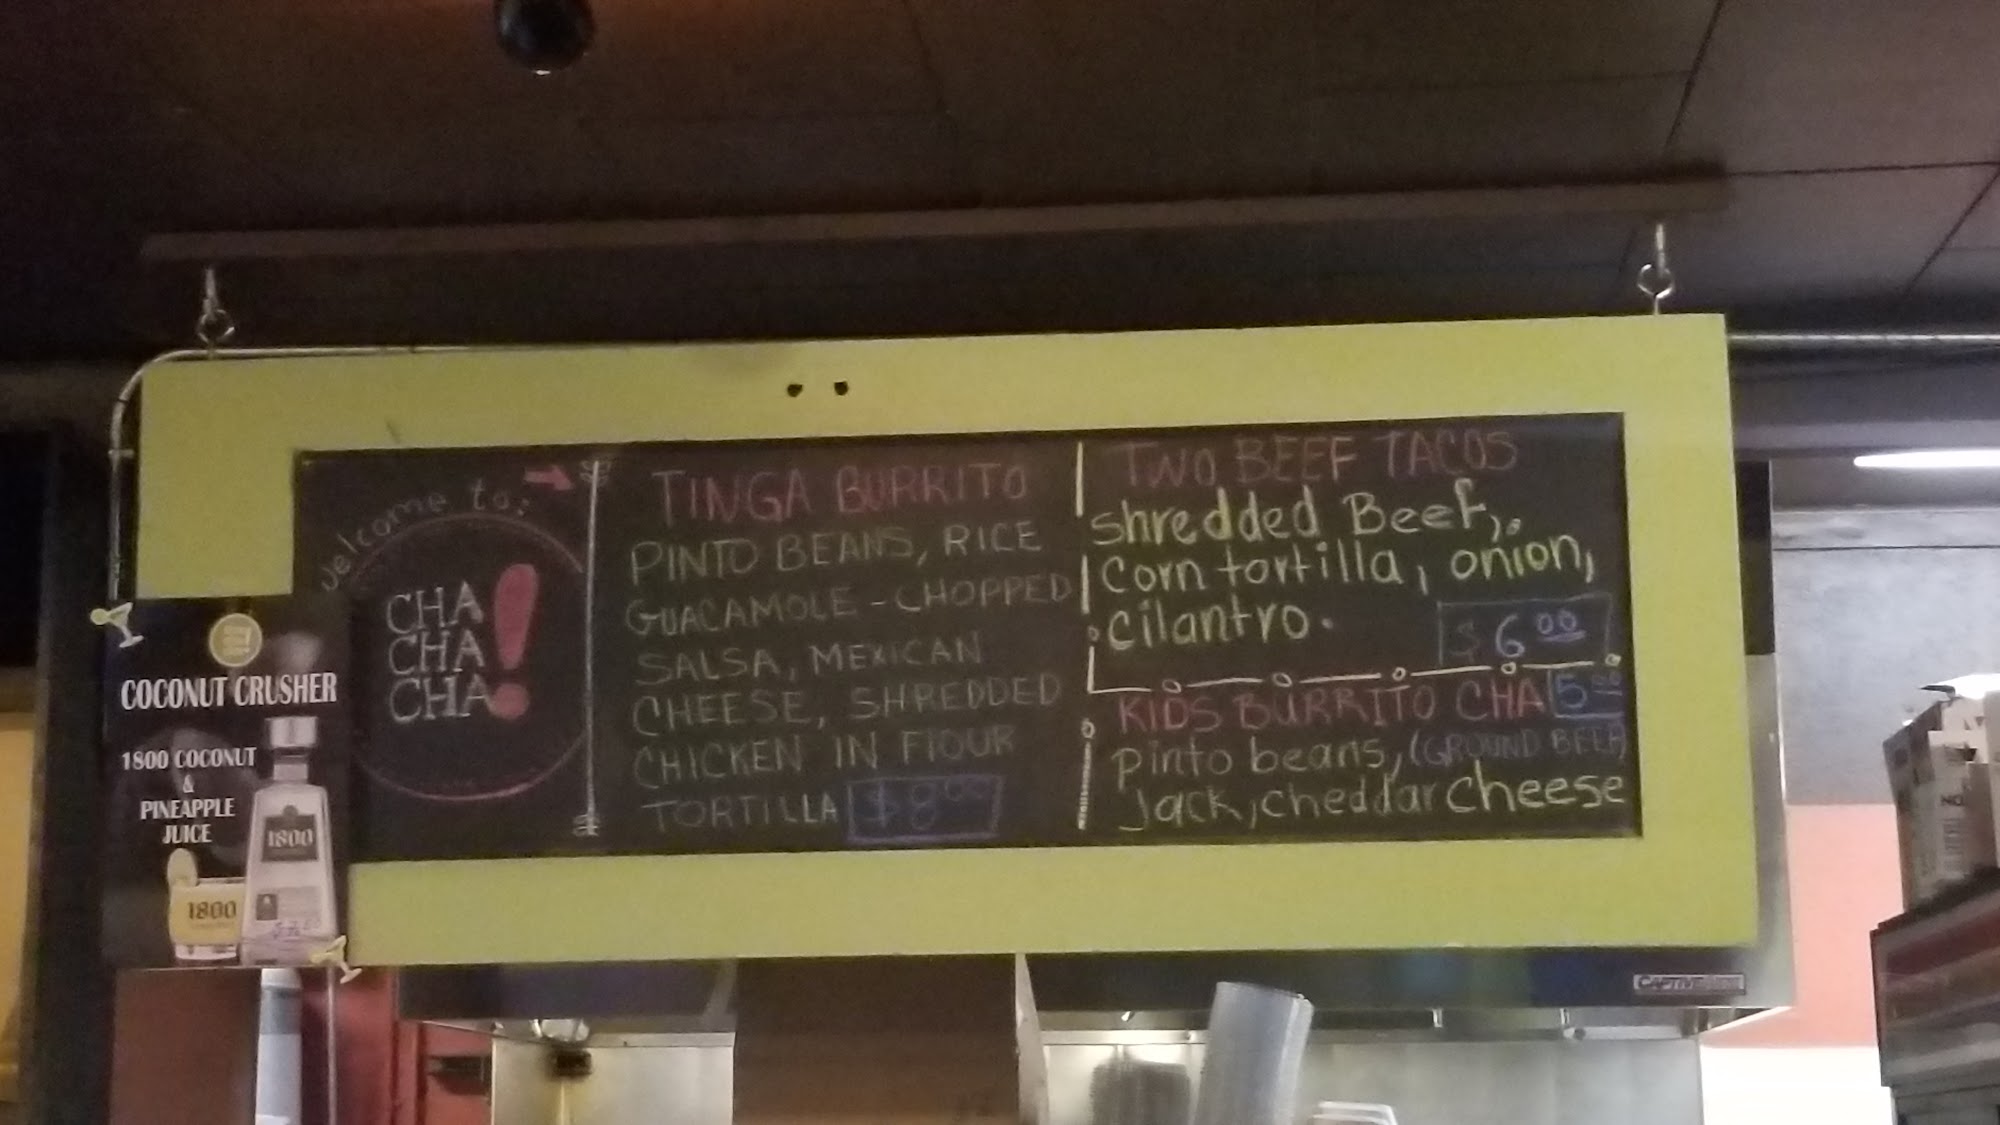 welcome to:
CHA
CHA
CHA!
TINGA BURRITO
PINTO BEANS, RICE
GUACAMOLE - CHOPPED
SALSA, MEXICAN
CHEESE, SHREDDED
CHICKEN IN FlOUR
TORTILLA $8.00
TWO BEEF TACOS
shredded Beef,
corn tortilla, onion,
cilantro.
$6.00
KIDS BURRITO CHA 5.00
pinto beans, (GROUND BEEF)
Jack, cheddar cheese
COCONUT CRUSHER
1800 COCONUT
&
PINEAPPLE
JUICE
1800
1800